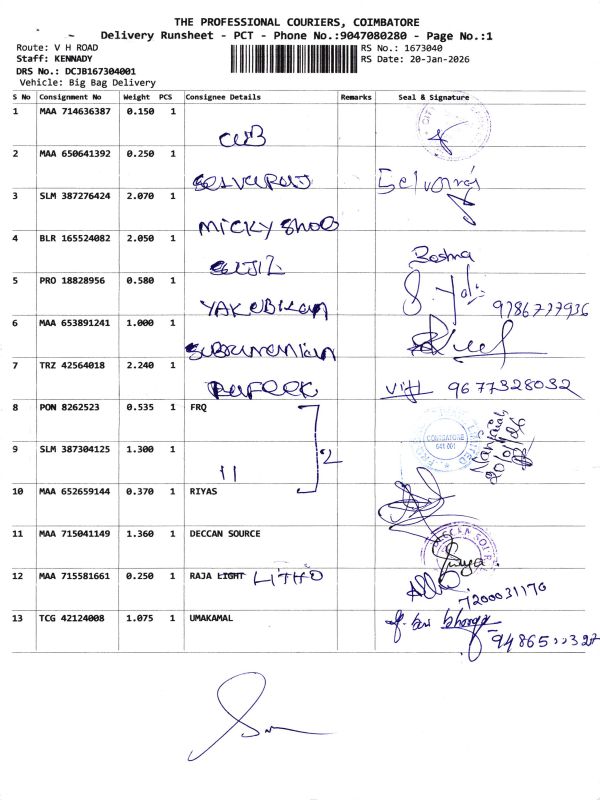 THE PROFESSIONAL COURIERS, COIMBATORE
Delivery Runsheet - PCT - Phone No.:9047080280 - Page No.:1
Route: V H ROAD RS No.: 1673040
Staff: KENNADY RS Date: 20-Jan-2026
DRS No.: DCJB167304001
Vehicle: Big Bag Delivery
S No Consignment No Weight PCS Consignee Details Remarks Seal & Signature
1 MAA 714636387 0.150 1
CUB
2 MAA 650641392 0.250 1
SELVARAJ Selvaraj
3 SLM 387276424 2.070 1
MICKY SHOO
4 BLR 165524082 2.050 1
Boshna
5 PRO 18828956 0.580 1
YAKUBIKAN 9786777936
6 MAA 653891241 1.000 1
Subrunamian
7 TRZ 42564018 2.240 1
RAFEEK 9677328032
8 PON 8262523 0.535 1 FRQ
COIMBATORE
641 001
20/01/26
9 SLM 387304125 1.300 1
11 2
10 MAA 652659144 0.370 1 RIYAS
11 MAA 715041149 1.360 1 DECCAN SOURCE
12 MAA 715581661 0.250 1 RAJA LIGHT LITHO
7200031170
13 TCG 42124008 1.075 1 UMAKAMAL